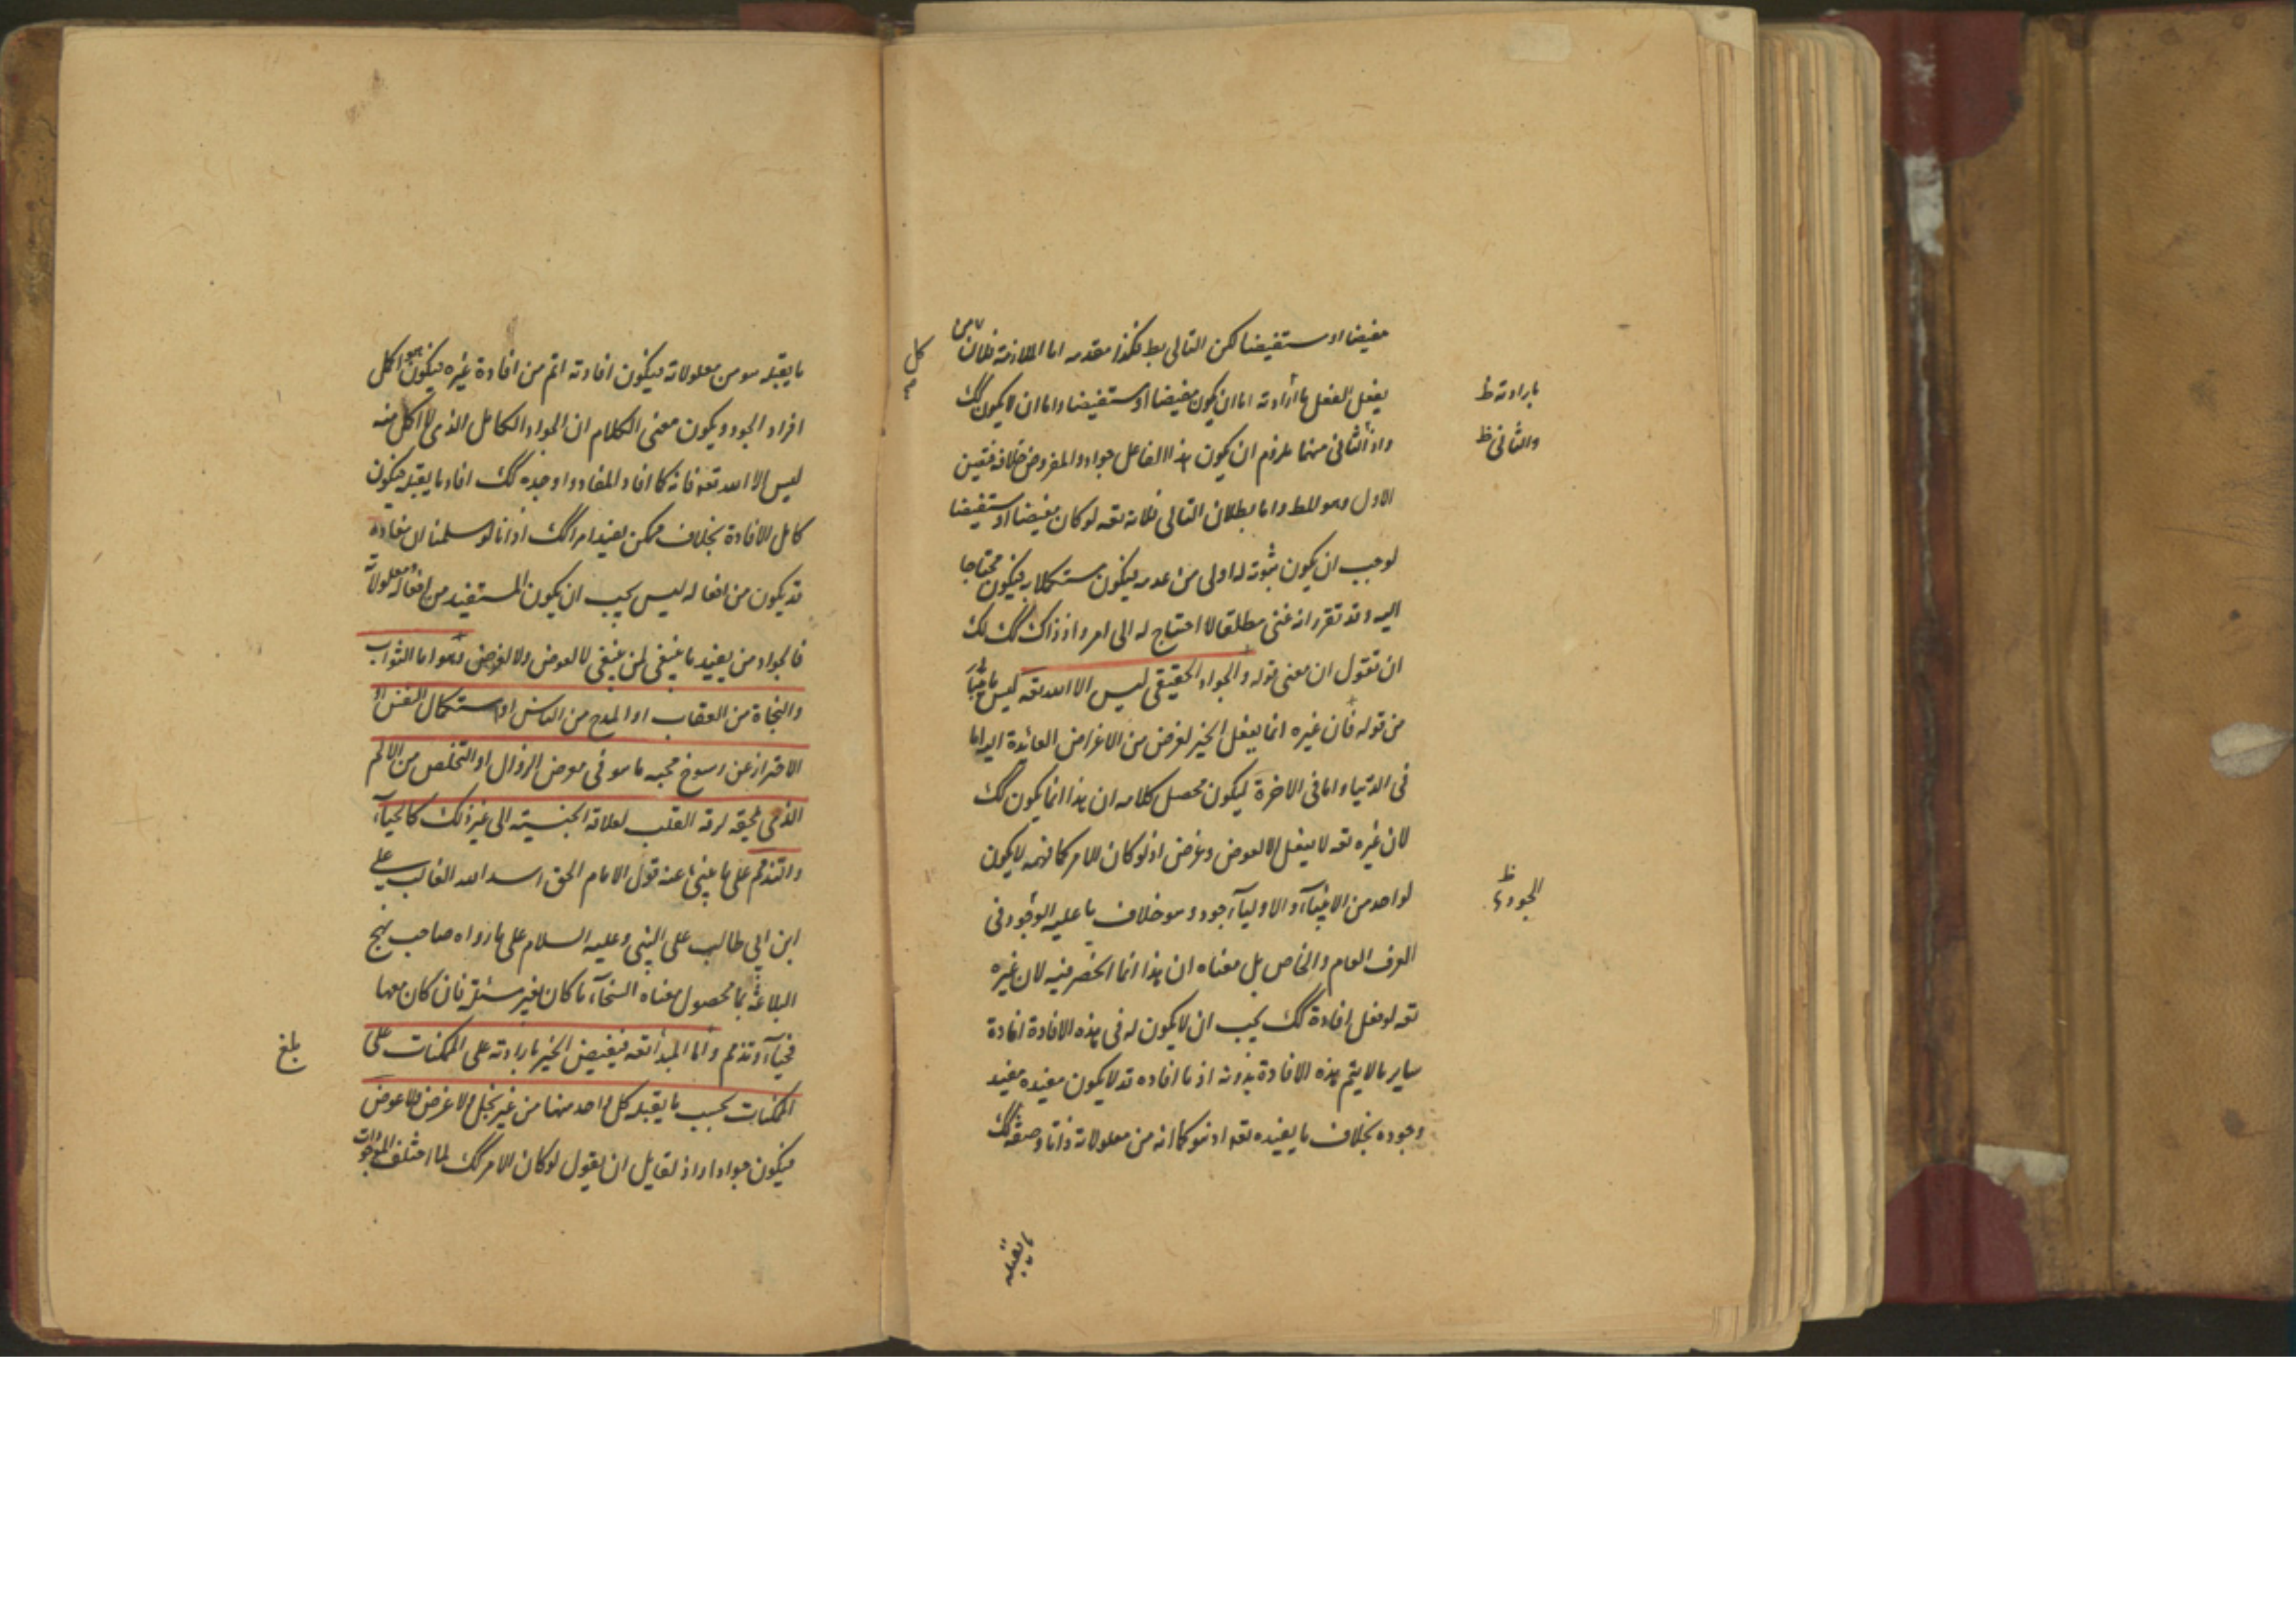 مفيضا او مستفيضا لكن التالى بط فكذا مقدمه اما الملازمة فلان من
يفعل الفعل بارادته اما ان يكون مفيضا او مستفيضا واما ان لا يكون كك
واذ الثانى منهما ملزوم ان يكون هذا الفاعل جوادا والمفروض خلافه فتعين
الاول وهو المط واما بطلان التالى فلانه تعه لو كان مفيضا او مستفيضا
لوجب ان يكون ثبوته له اولى من عدمه فيكون مستكملا به فيكون محتاجا
اليه وقد تقرر انه غنى مطلقا لا احتياج له الى امر واذ ذاك كك لك
ان تقول ان معنى قوله والجواد الحقيقى ليس الا الله تعه ليس
من قوله فان غيره انما يفعل الخير لغرض من الاغراض العائدة اليه اما
فى الدنيا واما فى الاخرة ليكون محصل كلامه ان هذا انما يكون كك
لان غيره تعه لا يفعل الا لعوض وغرض اذ لو كان الامر كما فهمه لا يكون
لواحد من الانبيآء والاوليآء جود وهو خلاف ما عليه الوجود فى
العرف العام والخاص بل معناه ان هذا انما انحصر فيه لان غيره
تعه لو فعل افادة كك يجب ان لا يكون له فى هذه الافادة افادة
ساير ما لا يتم هذه الافادة بدونه اذ ما افاده قد لا يكون مفيده مفيد
وجوده بخلاف ما يفيده تعه اذ هو كما انه من معلولاته ذاتا وصفة كك
بارادته ظ
والثانى ظ
الجود ظ
كل
ما يقبله
ما يقبله هو من معلولاته فيكون افادته اتم من افادة غيره فيكون هو اكمل
افراد الجود ويكون معنى الكلام ان الجواد الكامل الذى لا اكمل منه
ليس الا الله تعه فانه كما افاد المفاد واوجده كك افاد ما يقبله فيكون
كامل الافادة بخلاف ممكن يفيد امرا كك اذ انا لو سلمنا ان مفاده
قد يكون من افعاله ليس يجب ان يكون المستفيد من افعاله ومعلولاته
فالجواد من يفيد ما ينبغى لمن ينبغى لا لعوض ولا لغرض وهو اما الثواب
والنجاة من العقاب او المدح من الناس او استكمال النفس او
الاحتراز عن رسوخ محبه ما هو فى معرض الزوال او التخلص من الالم
الذى يلحقه لرقه القلب لعلاقه الجنسيته الى غير ذلك كالحيآء
والتذمم على ما ينبئ عنه قول الامام الحق اسد الله الغالب على
ابن ابى طالب على النبى وعليه السلام على ما رواه صاحب نهج
البلاغة بما محصول معناه السخآء ما كان بغير مسئلة فان كان معها
فحيآء وتذمم واما المبدأ تعه فيفيض الخير بارادته على الممكنات على
الممكنات بحسب ما يقبله كل واحد منها من غير بخل ولا غرض ولا عوض
فيكون جوادا واذ لقايل ان يقول لو كان الامر كك لما اختلف الموجودات
بلغ